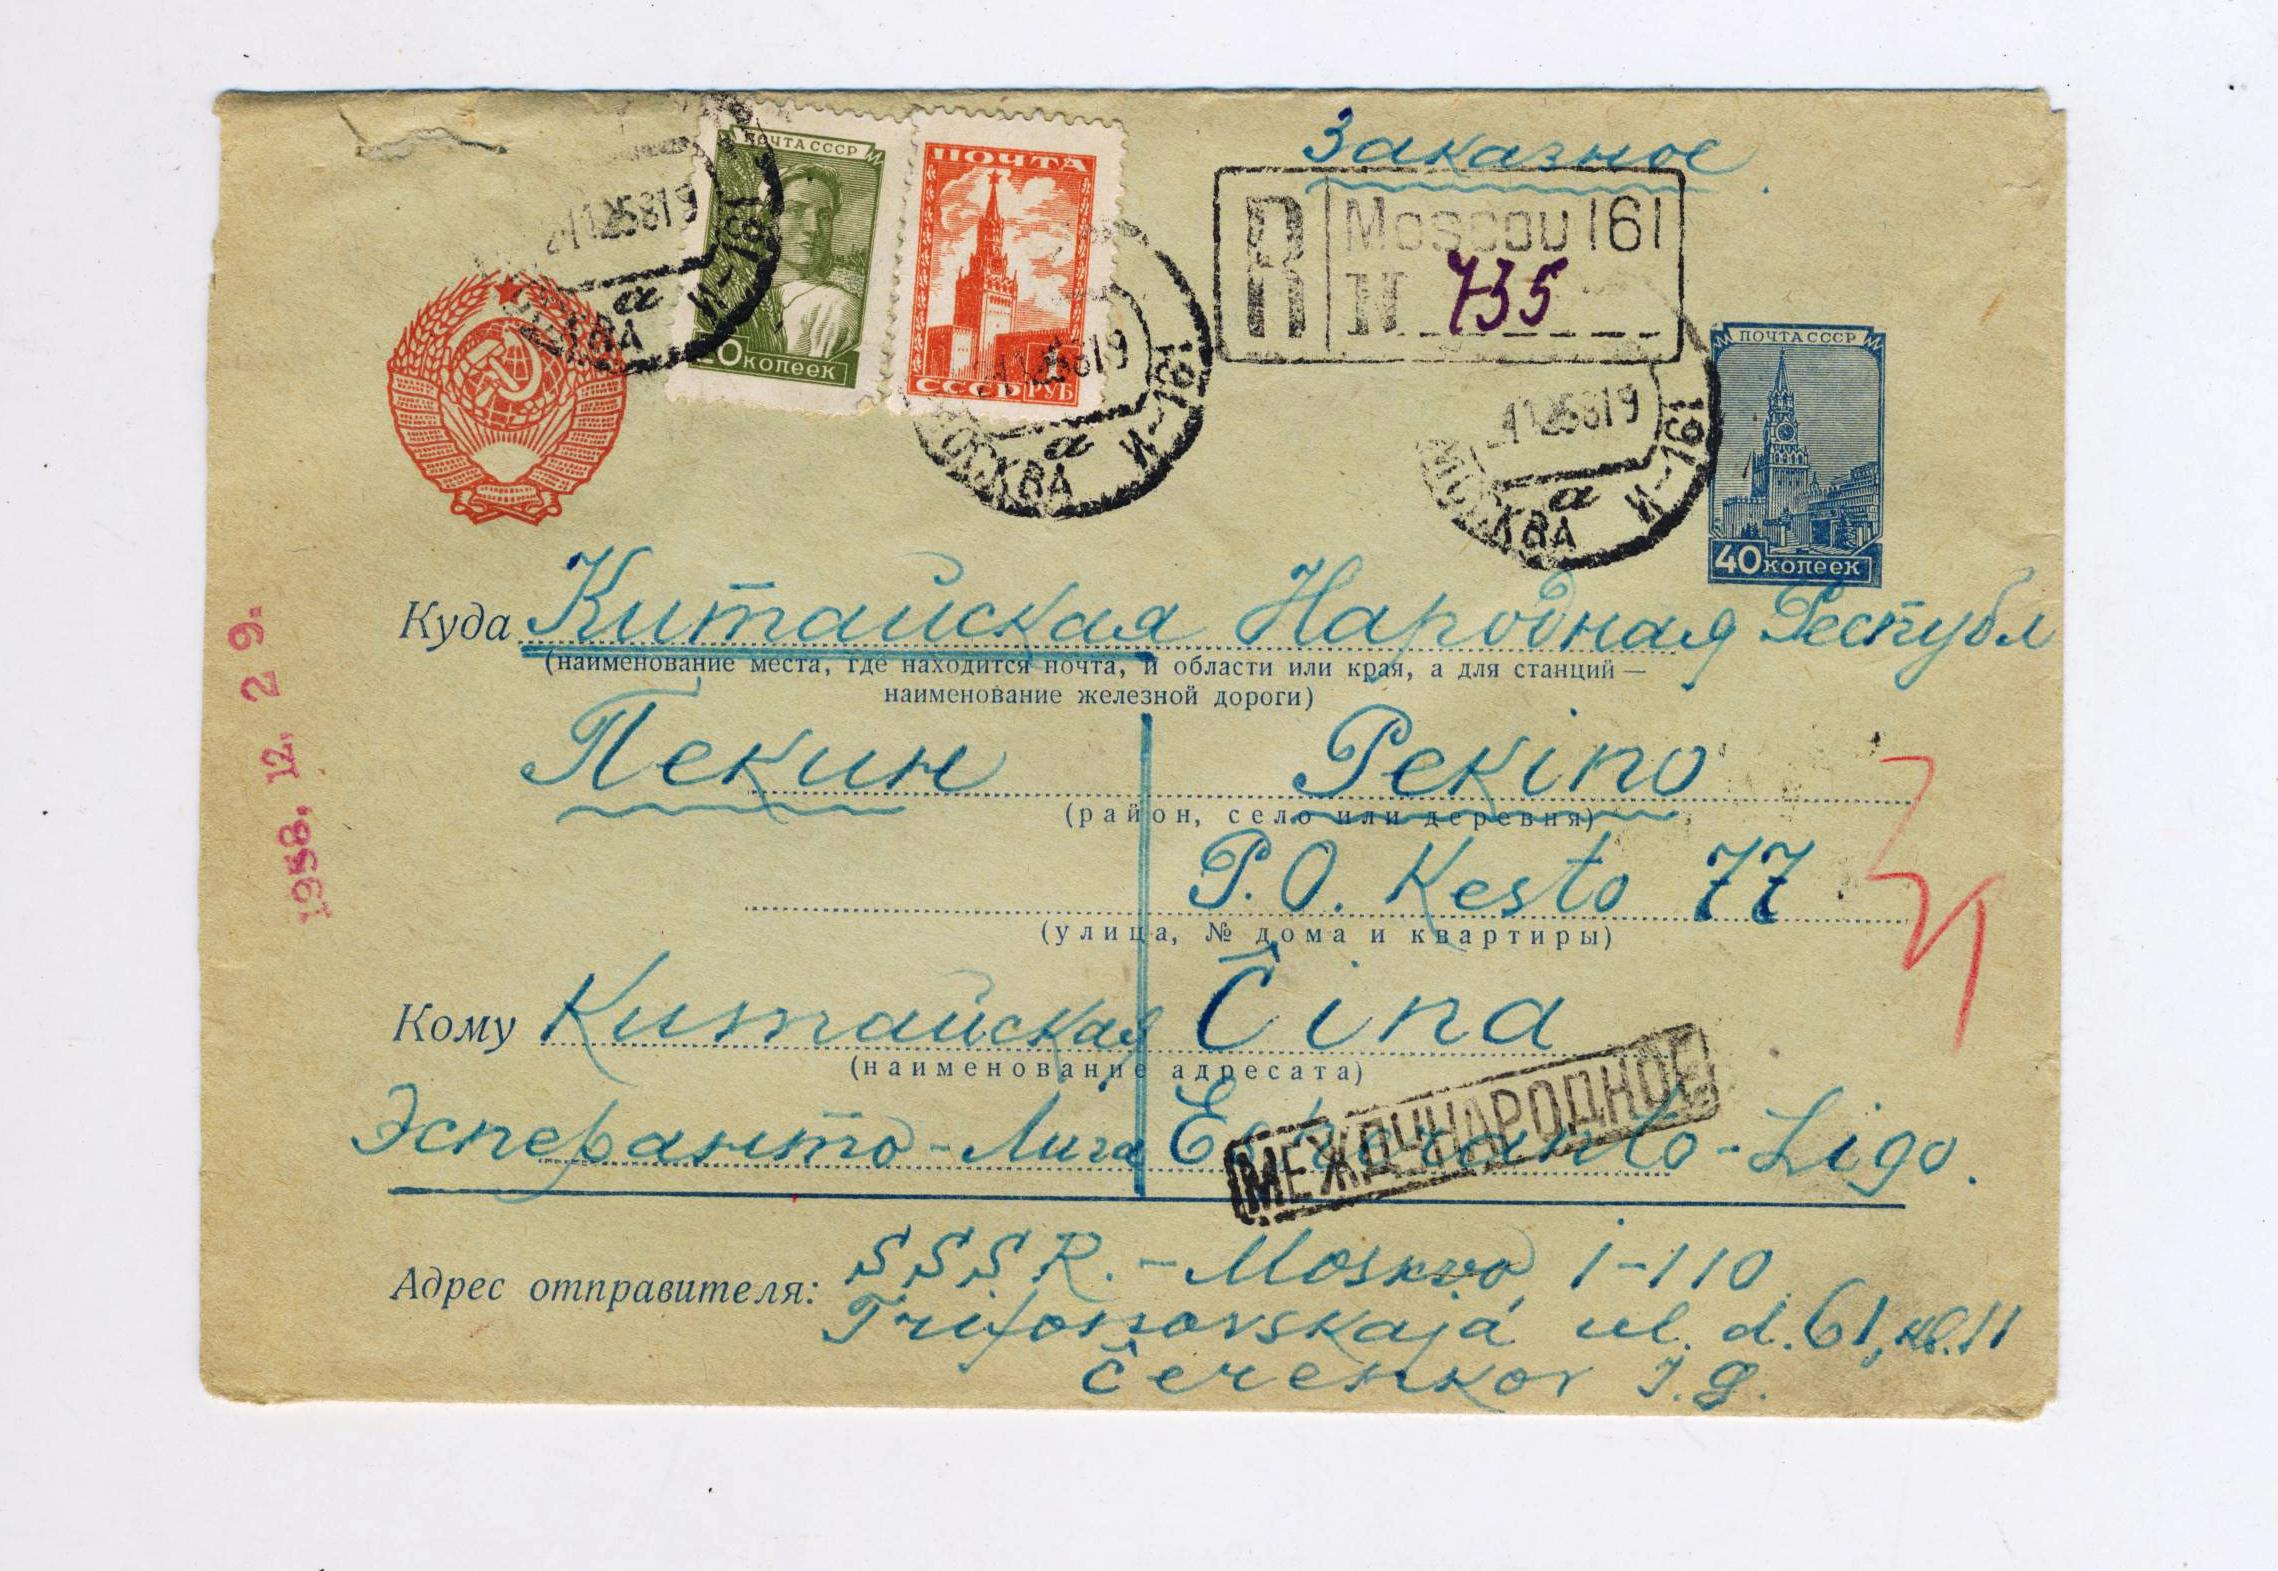 Заказное
ПОЧТА СССР
КОПЕЕК
ПОЧТА
СССР РУБ
R Moscou 161
N 735
МОСКВА И-161
а
МОСКВА И-161
а
МОСКВА И-161
а
ПОЧТА СССР
40 КОПЕЕК
1958. 12. 29.
Куда Китайская Народная Республ
(наименование места, где находится почта, и области или края, а для станций —
наименование железной дороги)
Пекин Pekino
(район, село или деревня)
P.O. Kesto 77
(улица, № дома и квартиры)
Кому Китайская Ĉina
(наименование адресата)
Эсперанто-Лига Esperanto-Ligo.
МЕЖДУНАРОДНОЕ
Адрес отправителя: SSSR.-Moskva I-110
Trifonovskaja ul. d. 61, кв. 11
Ĉerenkov